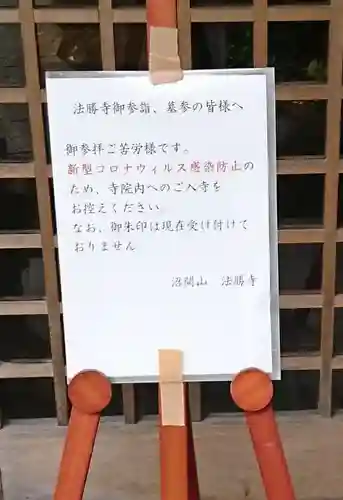 法勝寺御参詣、墓参の皆様へ
御参拝ご苦労様です。
新型コロナウィルス感染防止の
ため、寺院内へのご入寺を
お控えください
なお、御朱印は現在受け付けて
おりません
沼間山　法勝寺